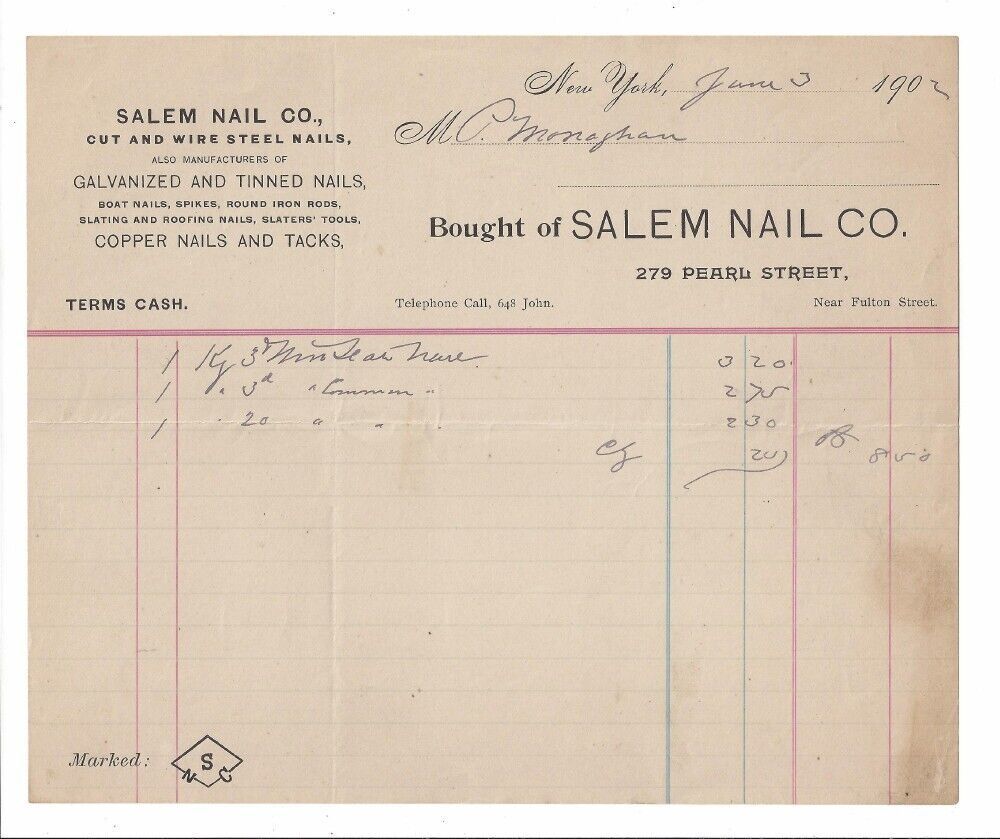 New York, June 3 1902
M P. Monaghan
SALEM NAIL CO.,
CUT AND WIRE STEEL NAILS,
ALSO MANUFACTURERS OF
GALVANIZED AND TINNED NAILS,
BOAT NAILS, SPIKES, ROUND IRON RODS,
SLATING AND ROOFING NAILS, SLATERS' TOOLS,
COPPER NAILS AND TACKS,
Bought of SALEM NAIL CO.
279 PEARL STREET,
TERMS CASH.
Telephone Call, 648 John.
Near Fulton Street.
1 Kg 3d 3 20
1 " 3d " Common " 2 75
1 " 20 " " " 2 30
Ctg 25 8 50
Marked:
S
N C